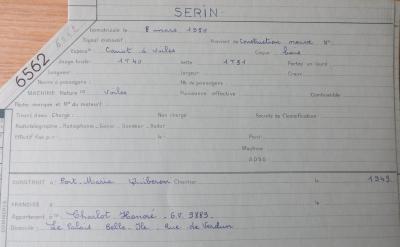 SERIN
6562
Immatriculé le 8 mars 1950
Signal distinctif : Provient de Construction neuve N°
Espèce Canot à voiles Coque bois
Jauge brute : 1T40 nette 1T31 Portée en lourd
Longueur Largeur Creux
Nombre de passagers :
MACHINE Nature (1) Voiles Puissance effective Combustible
Date, marque et N° du moteur :
Tirant d'eau Charge : Non chargé Société de Classification
Radiotélégraphie - Radiophonie - Gonio - Sondeur - Radar
Effectif fixé par : à : Pont :
Machine
A.D.S.G.
CONSTRUIT à : Port-Maria Quiberon Chantier le 1949
FRANCISÉ à le
Appartenant à : Charlot Honoré - G.V. 9883
Domicile : Le Palais Belle-Ile Rue de Verdun